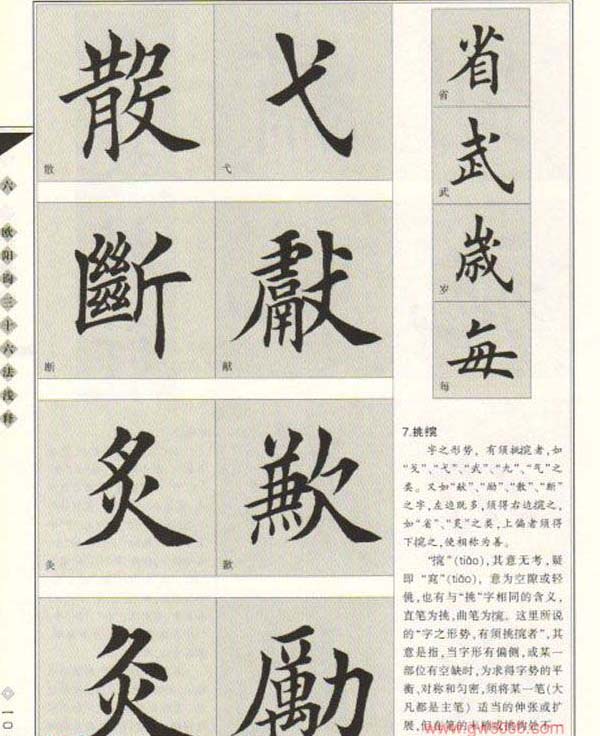 六
欧阳询三十六法浅释
一〇
散
弋
散
弋
斷
獻
断
献
炙
歉
炙
歉
灸
勵
省
省
武
武
歳
岁
每
每
7.挑
字之形势，有须挑者，如
“戈”、“弋”、“武”、“九”、“气”之
类。又如“献”、“励”、“散”、“断”
之字，左边既多，须得右边之，
如“省”、“炙”之类，上偏者须得
下之，使相称为善。
“”(tiǎo)，其意无考，疑
即“窕”(tiǎo)，意为空隙或轻
佻，也有与“挑”字相同的含义，
直笔为挑，曲笔为。这里所说
的“字之形势，有须挑者”，其
意是指，当字形有偏侧，或某一
部位有空缺时，为求得字势的平
衡、对称和匀密，须将某一笔(大
凡都是主笔) 适当的伸张或扩
展，但在笔的末梢或挑钩处不